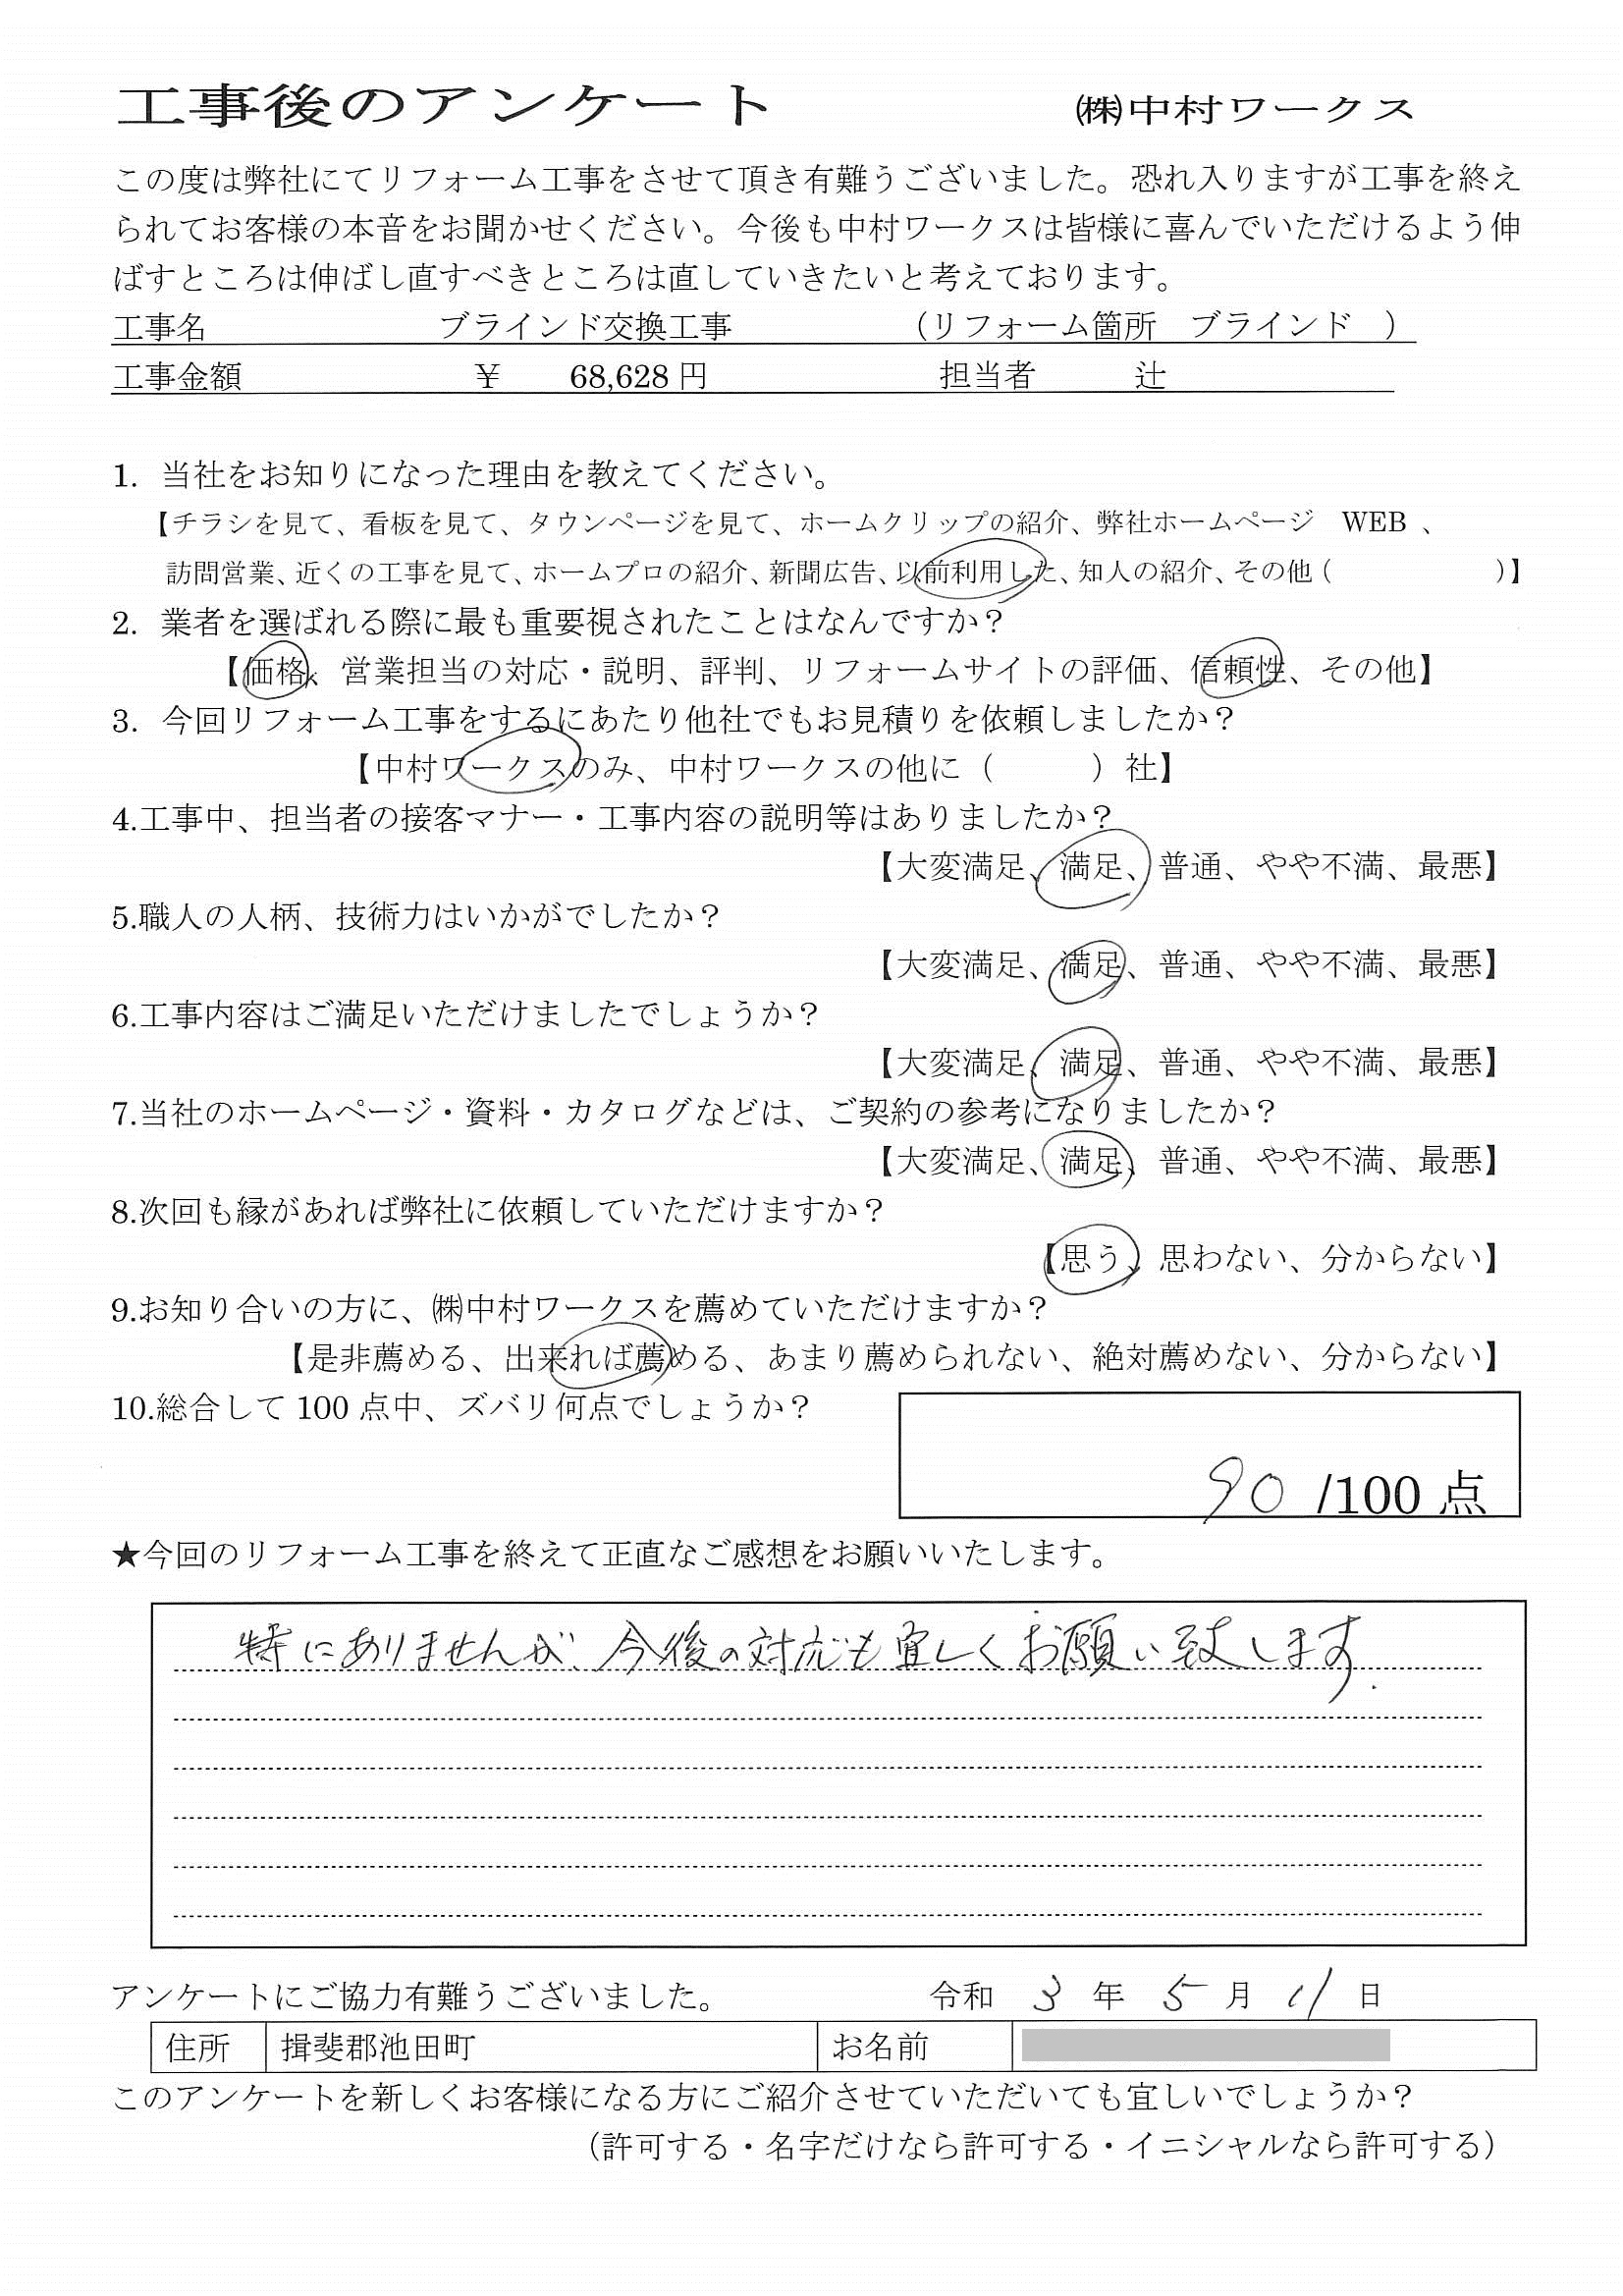 工事後のアンケート ㈱中村ワークス
この度は弊社にてリフォーム工事をさせて頂き有難うございました。恐れ入りますが工事を終え
られてお客様の本音をお聞かせください。今後も中村ワークスは皆様に喜んでいただけるよう伸
ばすところは伸ばし直すべきところは直していきたいと考えております。
工事名 ブラインド交換工事 （リフォーム箇所 ブラインド ）
工事金額 ￥ 68,628 円 担当者 辻
1. 当社をお知りになった理由を教えてください。
【チラシを見て、看板を見て、タウンページを見て、ホームクリップの紹介、弊社ホームページ WEB 、
訪問営業、近くの工事を見て、ホームプロの紹介、新聞広告、以前利用した、知人の紹介、その他（ ）】
2. 業者を選ばれる際に最も重要視されたことはなんですか？
【価格、営業担当の対応・説明、評判、リフォームサイトの評価、信頼性、その他】
3. 今回リフォーム工事をするにあたり他社でもお見積りを依頼しましたか？
【中村ワークスのみ、中村ワークスの他に（ ）社】
4.工事中、担当者の接客マナー・工事内容の説明等はありましたか？
【大変満足、満足、普通、やや不満、最悪】
5.職人の人柄、技術力はいかがでしたか？
【大変満足、満足、普通、やや不満、最悪】
6.工事内容はご満足いただけましたでしょうか？
【大変満足、満足、普通、やや不満、最悪】
7.当社のホームページ・資料・カタログなどは、ご契約の参考になりましたか？
【大変満足、満足、普通、やや不満、最悪】
8.次回も縁があれば弊社に依頼していただけますか？
【思う、思わない、分からない】
9.お知り合いの方に、㈱中村ワークスを薦めていただけますか？
【是非薦める、出来れば薦める、あまり薦められない、絶対薦めない、分からない】
10.総合して 100 点中、ズバリ何点でしょうか？
90 /100 点
★今回のリフォーム工事を終えて正直なご感想をお願いいたします。
特にありませんが、今後の対応も宜しくお願い致します.
アンケートにご協力有難うございました。 令和 3 年 5 月 11 日
住所 揖斐郡池田町 お名前
このアンケートを新しくお客様になる方にご紹介させていただいても宜しいでしょうか？
（許可する・名字だけなら許可する・イニシャルなら許可する）